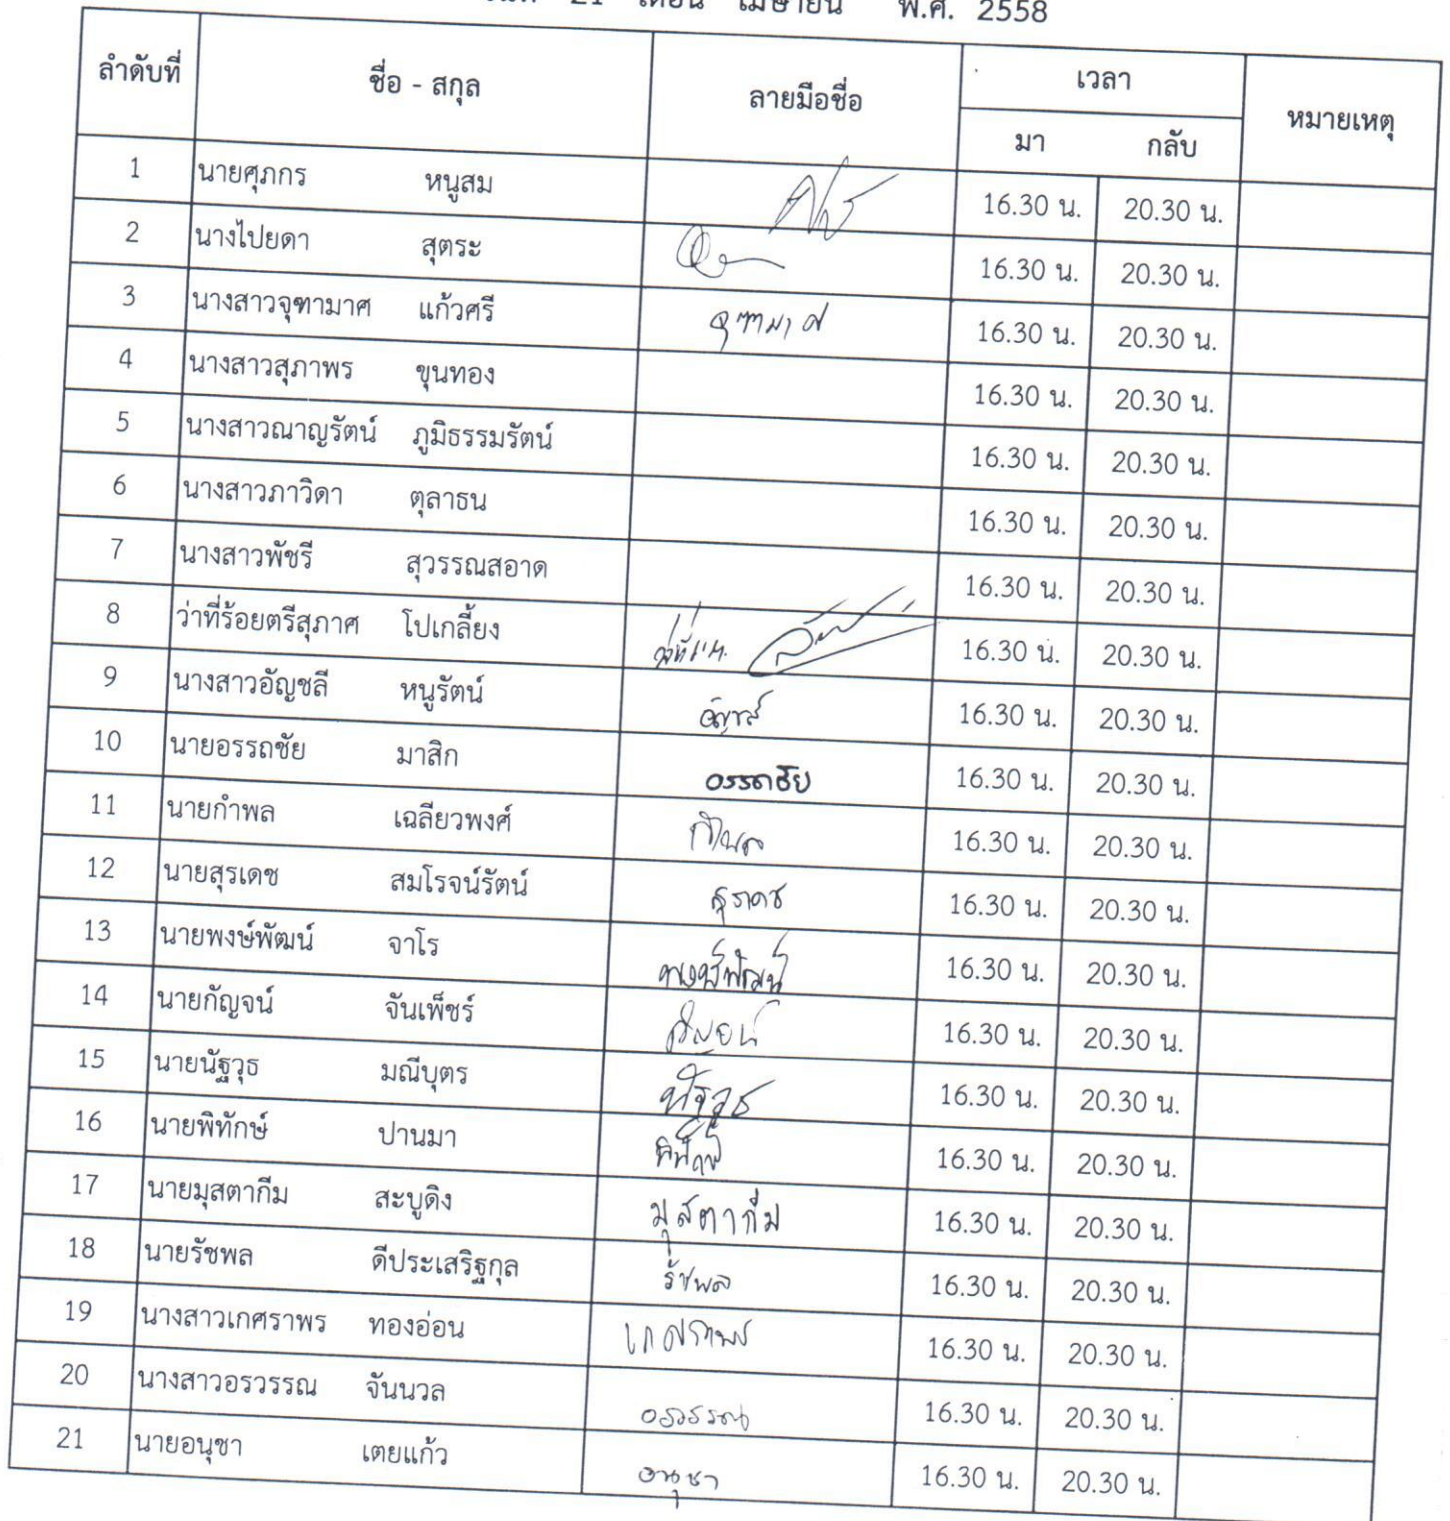 21 เดือน เมษายน พ.ศ. 2558
ลำดับที่ ชื่อ - สกุล ลายมือชื่อ เวลา หมายเหตุ
มา กลับ
1 นายศุภกร หนูสม 16.30 น. 20.30 น.
2 นางไปยดา สุตระ 16.30 น. 20.30 น.
3 นางสาวจุฑามาศ แก้วศรี จุฑามาศ 16.30 น. 20.30 น.
4 นางสาวสุภาพร ขุนทอง 16.30 น. 20.30 น.
5 นางสาวณาญรัตน์ ภูมิธรรมรัตน์ 16.30 น. 20.30 น.
6 นางสาวภาวิดา ตุลาธน 16.30 น. 20.30 น.
7 นางสาวพัชรี สุวรรณสอาด 16.30 น. 20.30 น.
8 ว่าที่ร้อยตรีสุภาศ โปเกลี้ยง ว่าที่ ร.ต. 16.30 น. 20.30 น.
9 นางสาวอัญชลี หนูรัตน์ อัญชลี 16.30 น. 20.30 น.
10 นายอรรถชัย มาสิก อรรถชัย 16.30 น. 20.30 น.
11 นายกำพล เฉลียวพงศ์ กำพล 16.30 น. 20.30 น.
12 นายสุรเดช สมโรจน์รัตน์ สุรเดช 16.30 น. 20.30 น.
13 นายพงษ์พัฒน์ จาโร พงษ์พัฒน์ 16.30 น. 20.30 น.
14 นายกัญจน์ จันเพ็ชร์ กัญจน์ 16.30 น. 20.30 น.
15 นายนัฐวุธ มณีบุตร นัฐวุธ 16.30 น. 20.30 น.
16 นายพิทักษ์ ปานมา พิทักษ์ 16.30 น. 20.30 น.
17 นายมุสตากีม สะบูดิง มุสตากีม 16.30 น. 20.30 น.
18 นายรัชพล ดีประเสริฐกุล รัชพล 16.30 น. 20.30 น.
19 นางสาวเกศราพร ทองอ่อน เกศราพร 16.30 น. 20.30 น.
20 นางสาวอรวรรณ จันนวล อรวรรณ 16.30 น. 20.30 น.
21 นายอนุชา เตยแก้ว อนุชา 16.30 น. 20.30 น.